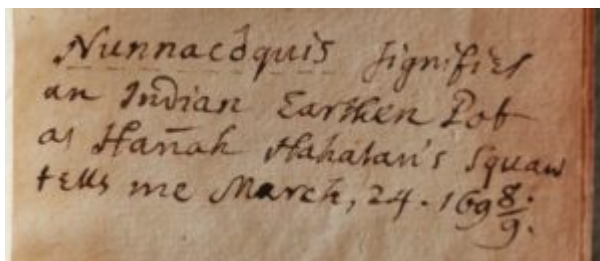 Nunnacôquis signifies
an Indian Earthen Pot
as Han̄ah Hahatan's Squaw
tells me March, 24. 169 8/9.